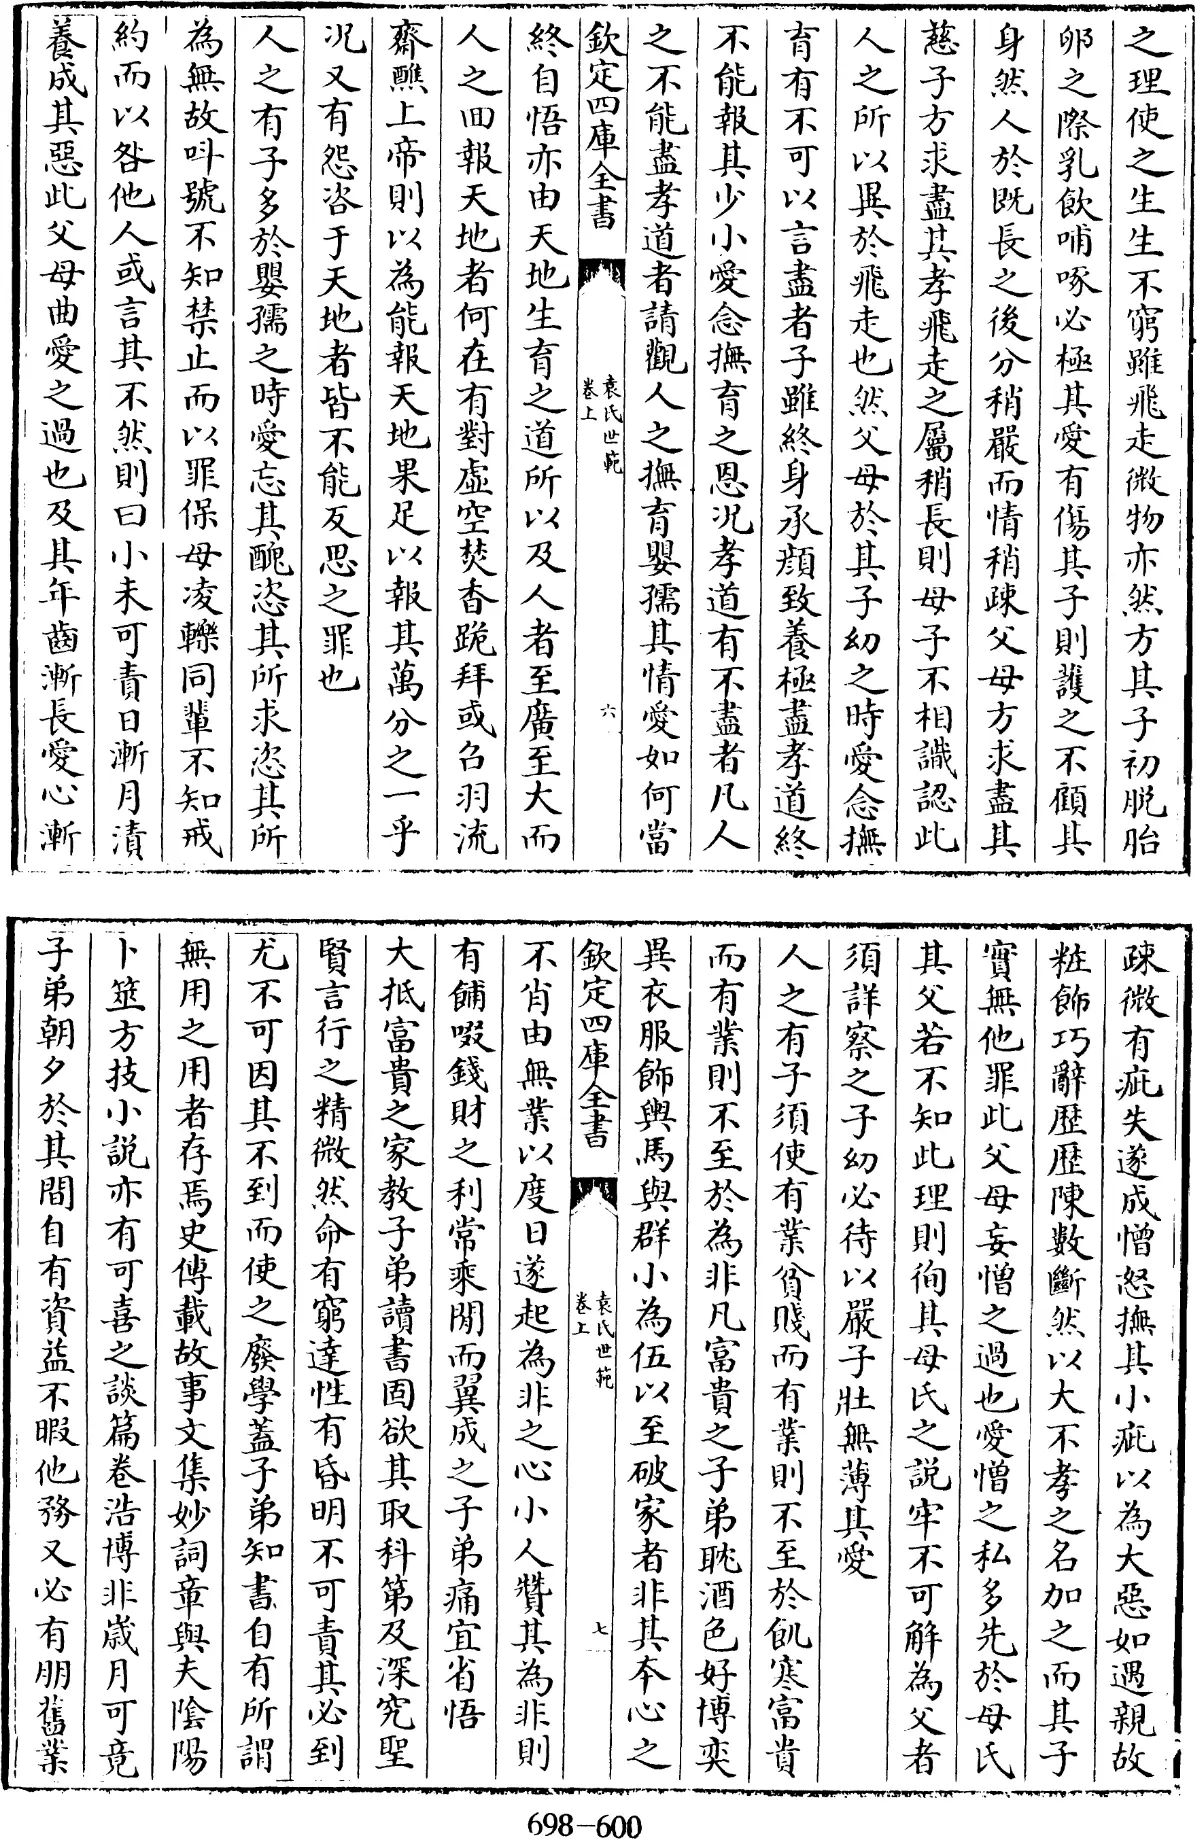 之理使之生生不窮雖飛走微物亦然方其子初脱胎
卵之際乳飲哺啄必極其愛有傷其子則護之不顧其
身然人於既長之後分稍嚴而情稍疎父母方求盡其
慈子方求盡其孝飛走之屬稍長則母子不相識認此
人之所以異於飛走也然父母於其子幼之時愛念撫
育有不可以言盡者子雖終身承顔致養極盡孝道終
不能報其少小愛念撫育之恩况孝道有不盡者凡人
之不能盡孝道者請觀人之撫育嬰孺其情愛如何當
欽定四庫全書
袁氏世範
卷上
六
終自悟亦由天地生育之道所以及人者至廣至大而
人之回報天地者何在有對虚空焚香跪拜或召羽流
齋醮上帝則以為能報天地果足以報其萬分之一乎
况又有怨咨于天地者皆不能反思之罪也
人之有子多於嬰孺之時愛忘其醜恣其所求恣其所
為無故呌號不知禁止而以罪保母凌轢同輩不知戒
約而以咎他人或言其不然則曰小未可責日漸月漬
養成其惡此父母曲愛之過也及其年齒漸長愛心漸
疎微有疵失遂成憎怒撫其小疵以為大惡如遇親故
粧飾巧辭歴歴陳數斷然以大不孝之名加之而其子
實無他罪此父母妄憎之過也愛憎之私多先於母氏
其父若不知此理則徇其母氏之説牢不可解為父者
須詳察之子幼必待以嚴子壯無薄其愛
人之有子須使有業貧賤而有業則不至於飢寒富貴
而有業則不至於為非凡富貴之子弟耽酒色好博奕
異衣服飾輿馬與群小為伍以至破家者非其本心之
欽定四庫全書
袁氏世範
卷上
七
不肖由無業以度日遂起為非之心小人贊其為非則
有餔啜錢財之利常乘閒而翼成之子弟痛宜省悟
大抵富貴之家教子弟讀書固欲其取科第及深究聖
賢言行之精微然命有窮達性有昏明不可責其必到
尤不可因其不到而使之廢學蓋子弟知書自有所謂
無用之用者存焉史傳載故事文集妙詞章與夫陰陽
卜筮方技小説亦有可喜之談篇卷浩博非歲月可竟
子弟朝夕於其間自有資益不暇他務又必有朋舊業
698-600